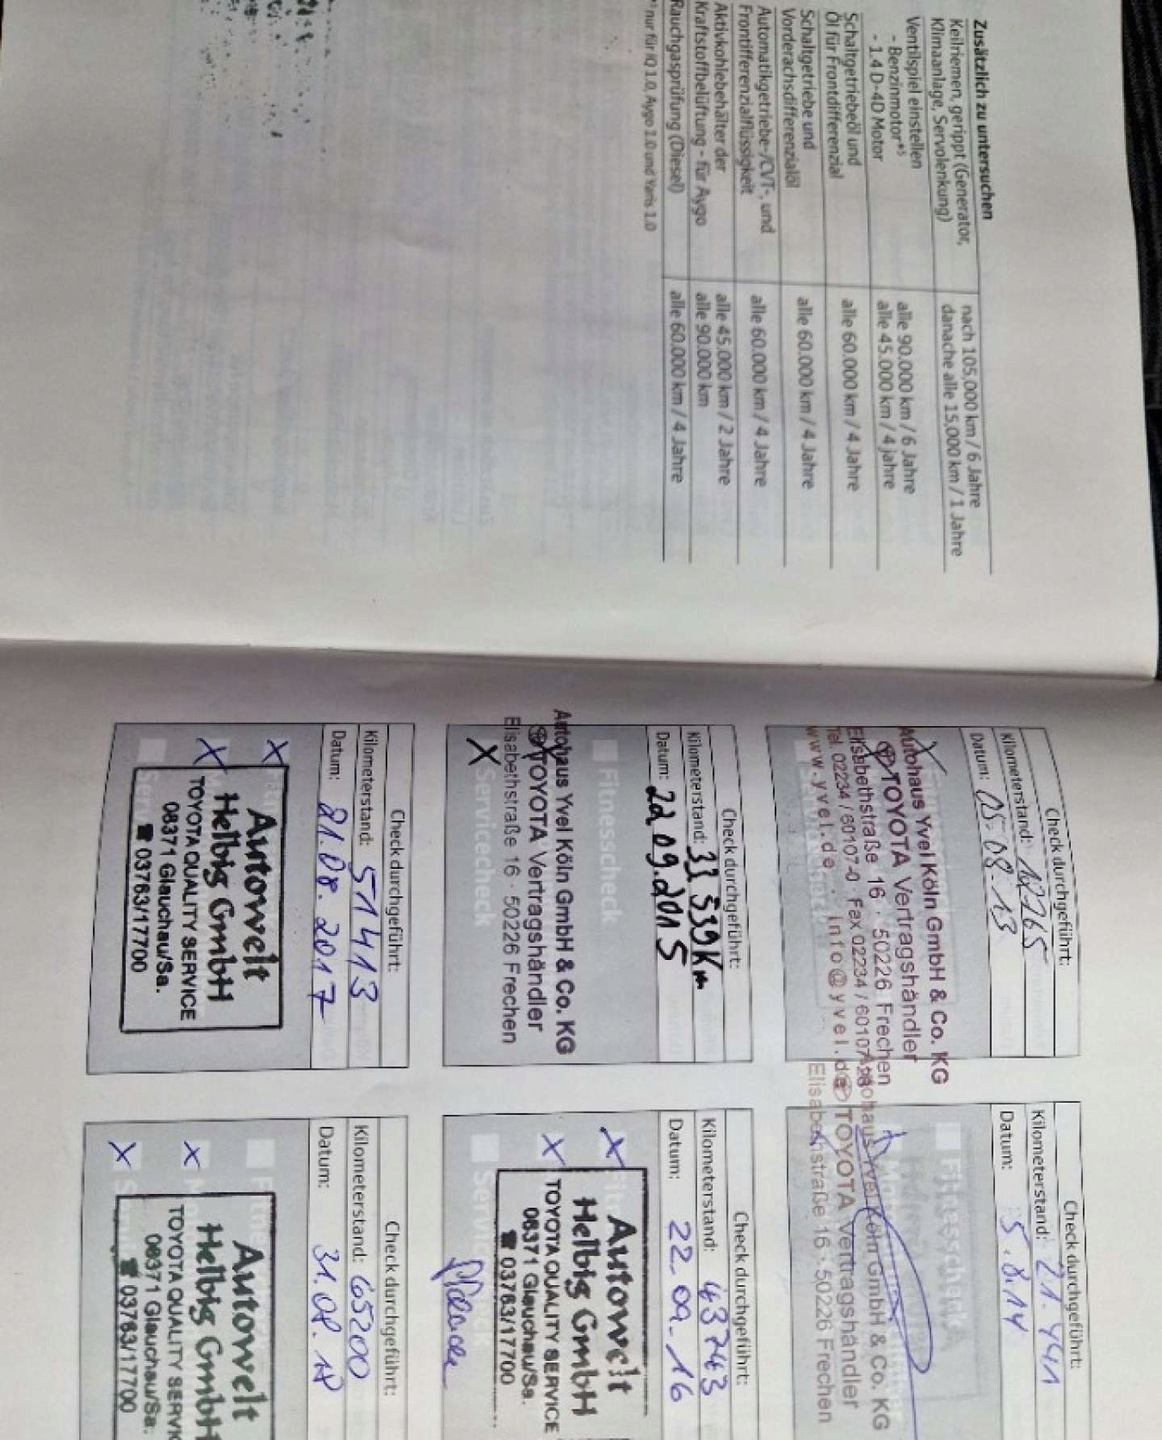 Zusätzlich zu untersuchen
Keilriemen, gerippt (Generator, nach 105.000 km / 6 Jahre
Klimaanlage, Servolenkung) danache alle 15.000 km / 1 Jahre
Ventilspiel einstellen
- Benzinmotor*⁵ alle 90.000 km / 6 Jahre
- 1.4 D-4D Motor alle 45.000 km / 4 jahre
Schaltgetriebeöl und alle 60.000 km / 4 Jahre
Öl für Frontdifferenzial
Schaltgetriebe und alle 60.000 km / 4 Jahre
Vorderachsdifferenzialöl
Automatikgetriebe-/CVT-, und alle 60.000 km / 4 Jahre
Frontifferenzialflüssigkeit
Aktivkohlebehälter der alle 45.000 km / 2 Jahre
Kraftstoffbelüftung - für Aygo alle 90.000 km
Rauchgasprüfung (Diesel) alle 60.000 km / 4 Jahre
nur für IQ 1.0, Aygo 1.0 und Yaris 1.0
Check durchgeführt:
Kilometerstand: 12265
Datum: 05.08.13
Autohaus Yvel Köln GmbH & Co. KG
TOYOTA Vertragshändler
Elisabethstraße 16 · 50226 Frechen
Tel. 02234 / 60107-0 · Fax 02234 / 60107-28
www.yvel.de · info@yvel.de
Check durchgeführt:
Kilometerstand: 21.441
Datum: 5.8.14
Fitnesscheck
Autohaus Yvel Köln GmbH & Co. KG
TOYOTA Vertragshändler
Elisabethstraße 16 · 50226 Frechen
Check durchgeführt:
Kilometerstand: 33 539 Km
Datum: 22.09.2015
Fitnesscheck
Autohaus Yvel Köln GmbH & Co. KG
TOYOTA Vertragshändler
Elisabethstraße 16 · 50226 Frechen
X Servicecheck
Check durchgeführt:
Kilometerstand: 43743
Datum: 22.09.16
X
Autowelt
X Helbig GmbH
TOYOTA QUALITY SERVICE
08371 Glauchau/Sa.
☎ 03763/17700
Check durchgeführt:
Kilometerstand: 51413
Datum: 21.08.2017
X
Autowelt
X Helbig GmbH
TOYOTA QUALITY SERVICE
08371 Glauchau/Sa.
☎ 03763/17700
Check durchgeführt:
Kilometerstand: 65200
Datum: 31.08.18
Autowelt
X Helbig GmbH
TOYOTA QUALITY SERVIC
08371 Glauchau/Sa.
X ☎ 03763/17700